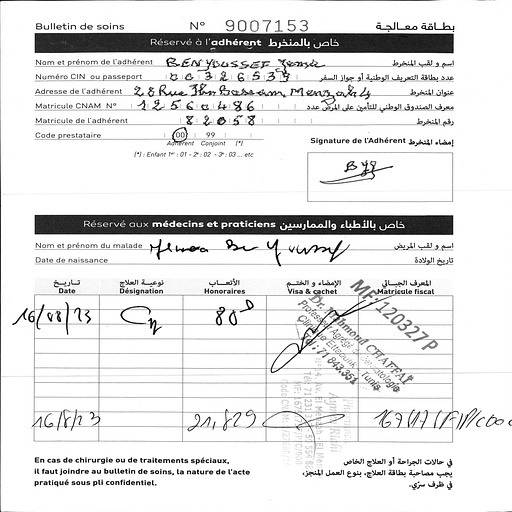 Bulletin de soins N° 9007153 بطاقة معالجة
Réservé à l'adhérent خاص بالمنخرط
Nom et prénom de l'adhérent BENYOUSSEF اسم و لقب المنخرط
Numéro CIN ou passeport 00326537 عدد بطاقة التعريف الوطنية أو جواز السفر
Adresse de l'adhérent 28 Rue Ibn Bassam Menzah عنوان المنخرط
Matricule CNAM N° 12560486 معرف الصندوق الوطني للتأمين على المرض عدد
Matricule de l'adhérent 82058 رقم المنخرط
Code prestataire 00 99
Adhérent Conjoint (*)
(*) : Enfant 1er : 01 - 2e : 02 - 3e : 03 ... etc
Signature de l'Adhérent إمضاء المنخرط
Réservé aux médecins et praticiens خاص بالأطباء والممارسين
Nom et prénom du malade Ben Youssef اسم و لقب المريض
Date de naissance تاريخ الولادة
تاريخ نوعية العلاج الأتعاب الإمضاء و الختم المعرف الجبائي
Date Désignation Honoraires Visa & cachet Matricule fiscal
16/08/23 80D
MF 120327P
Dr. Mahmoud CHAFFAI
Professeur Agrégé
Tunis
Tél : 71 843.351
16/8/23 21,829
En cas de chirurgie ou de traitements spéciaux,
il faut joindre au bulletin de soins, la nature de l'acte
pratiqué sous pli confidentiel.
في حالات الجراحة أو العلاج الخاص
يجب مصاحبة بطاقة العلاج، بنوع العمل المنجز،
في ظرف سرّي.